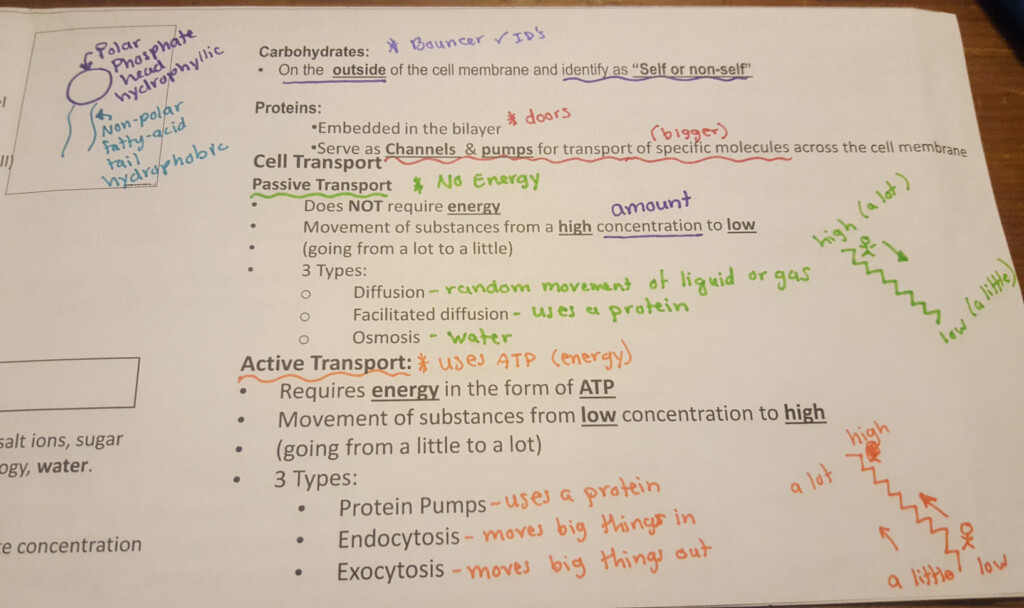 Polar
Phosphate
head
hydrophyllic
Non-polar
Fatty-acid
tail
hydrophobic
salt ions, sugar
ogy, water.
e concentration
Carbohydrates: * Bouncer ✓ ID's
• On the outside of the cell membrane and identify as “Self or non-self”
Proteins:
•Embedded in the bilayer * doors
(bigger)
•Serve as Channels & pumps for transport of specific molecules across the cell membrane
Cell Transport
Passive Transport * No Energy
• Does NOT require energy
amount
• Movement of substances from a high concentration to low
• (going from a lot to a little)
• 3 Types:
o Diffusion - random movement of liquid or gas
o Facilitated diffusion - uses a protein
o Osmosis - water
high (a lot)
low (a little)
Active Transport: * uses ATP (energy)
• Requires energy in the form of ATP
• Movement of substances from low concentration to high
• (going from a little to a lot)
• 3 Types:
• Protein Pumps - uses a protein
• Endocytosis - moves big things in
• Exocytosis - moves big things out
high
a lot
a little low